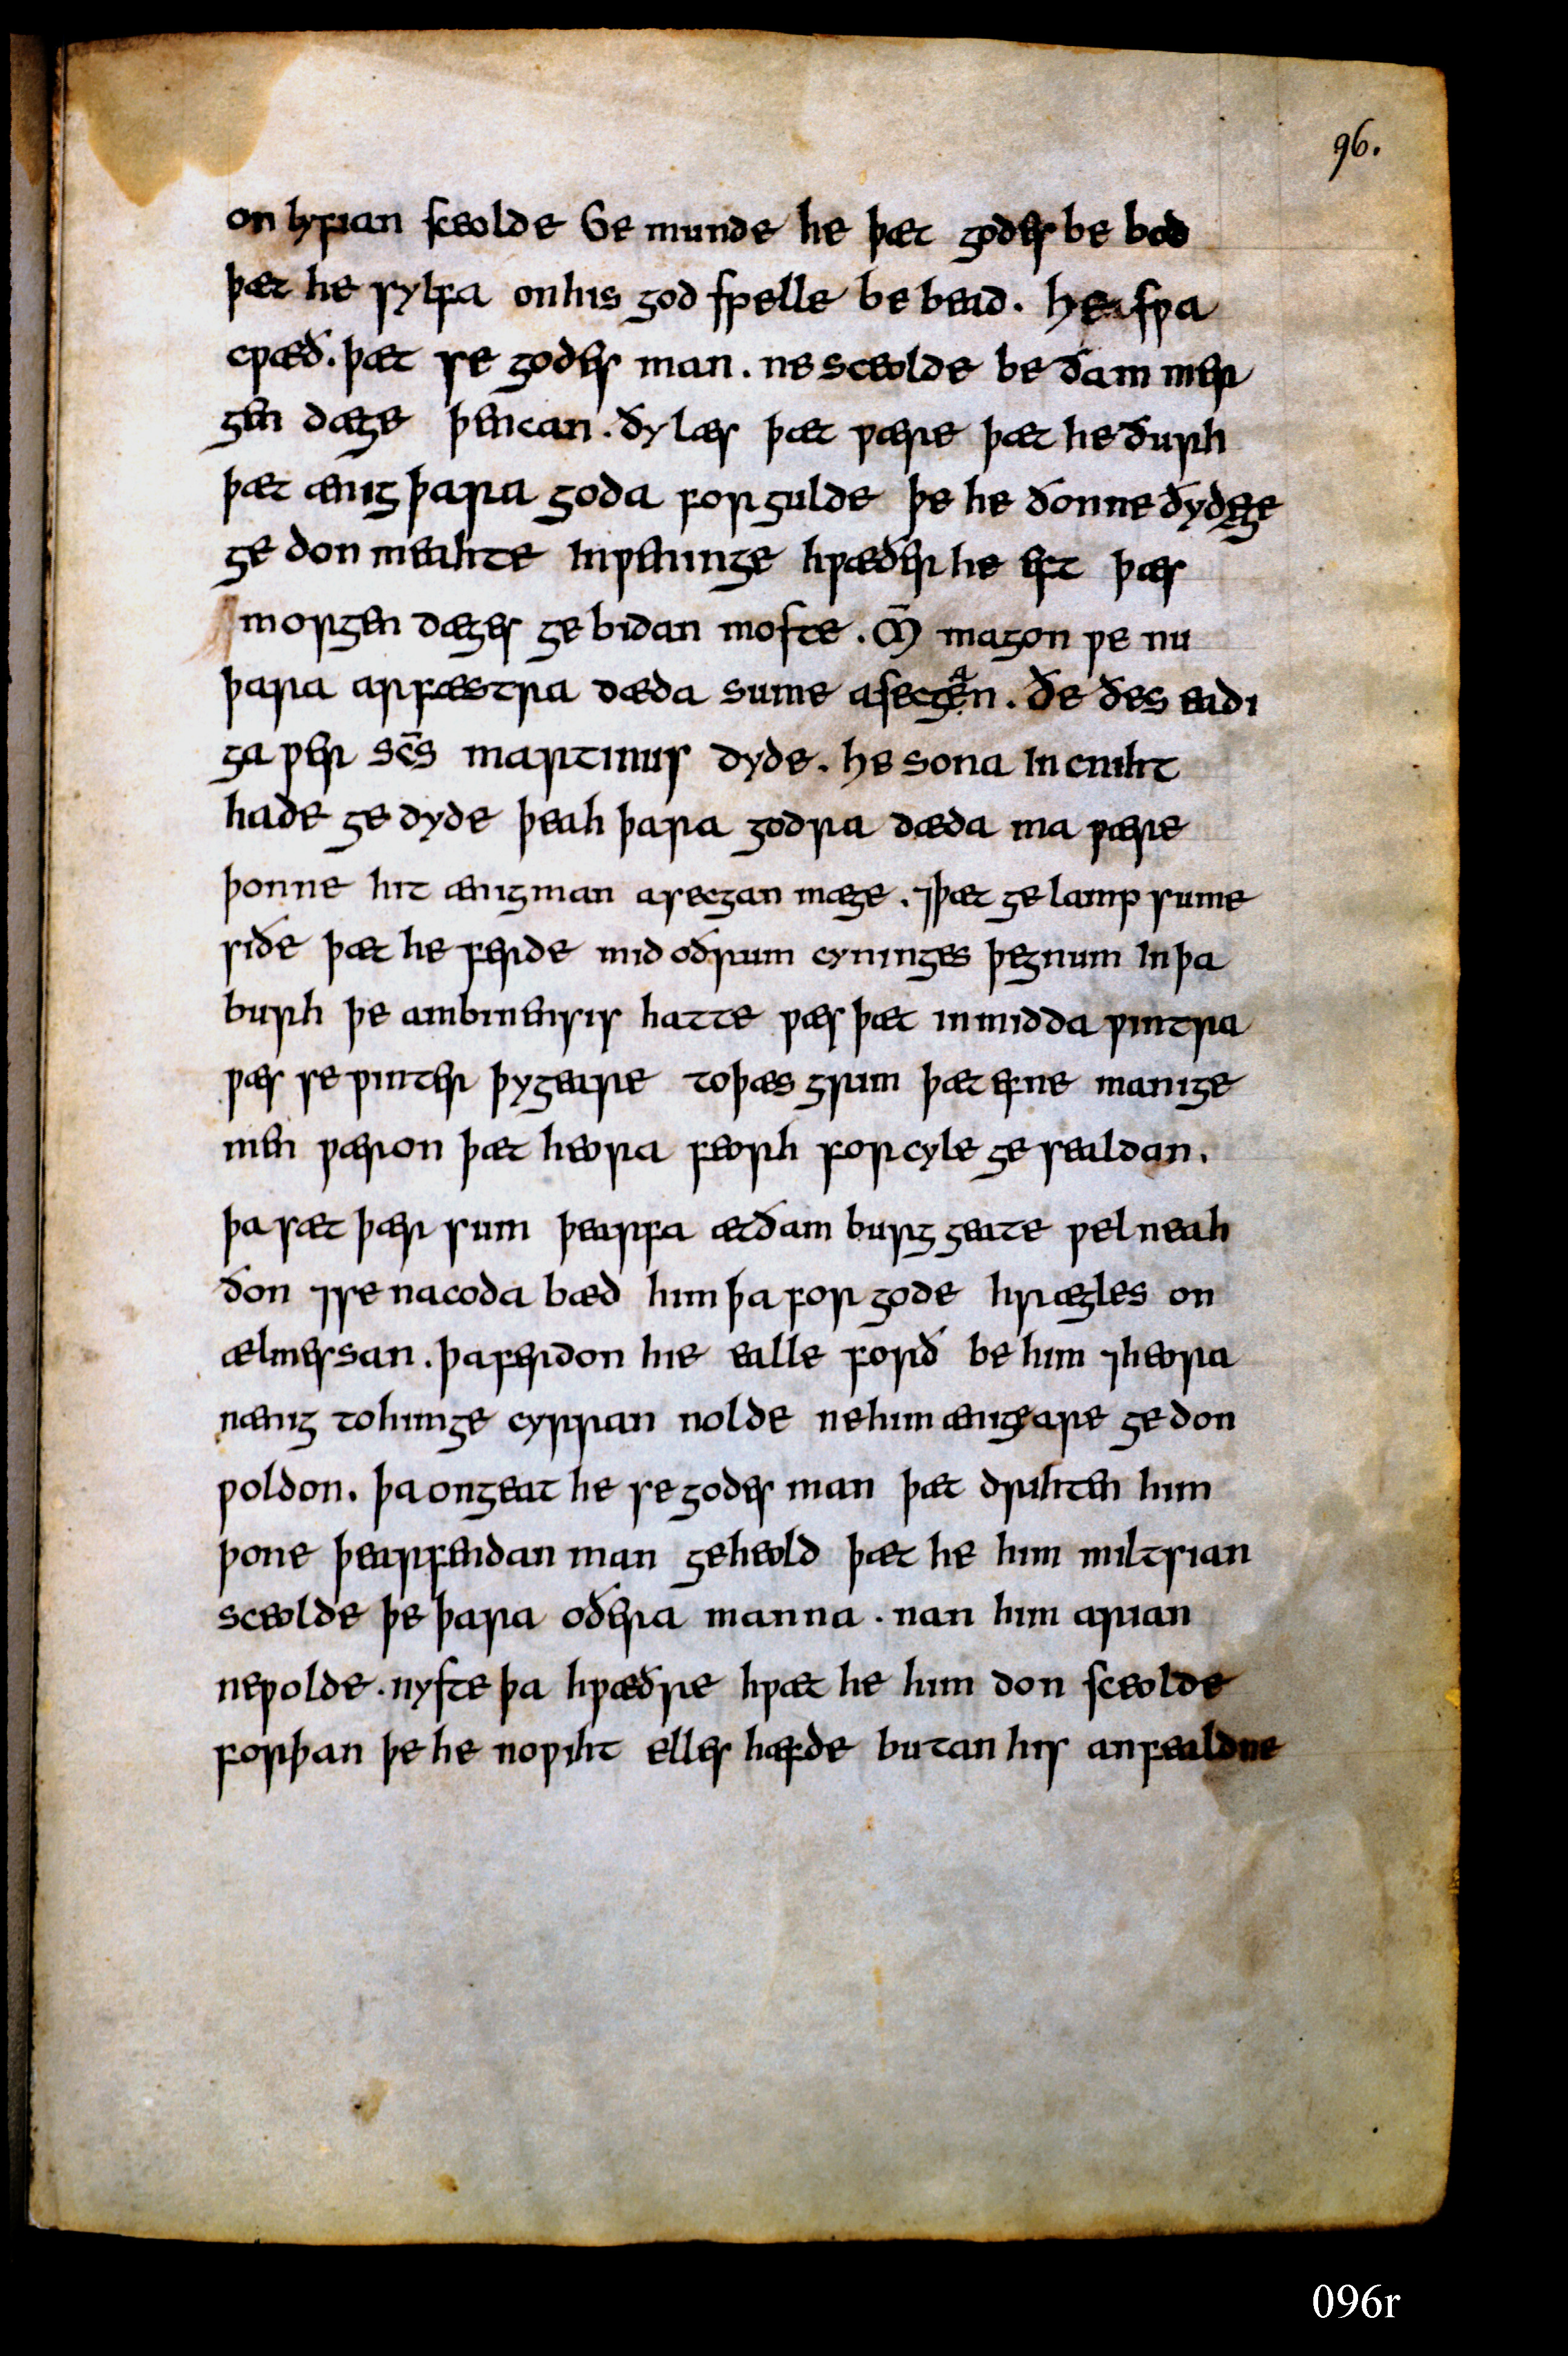 96.
on lyfian sceolde Ge munde he þæt godes be bod
þæt he sylfa onhis god spelle be bead. he swa
cwæð. þæt se godes man. ne sceolde be ðam mer
gen dæge þencan. ðy læs þæt wære þæt he ðurh
þæt ænig þara goda forgulde þe he ðonne ðydęge
ge don meahte in weninge hwæðer he eft þæs
morgen dæges ge bidan moste. M̄ magon we nu
þara arfæstra dæda sume asecgęᵃn. ðe ðes eadi
ga wer sc̄s martinus dyde. he sona in cniht
hade ge dyde þeah þara godra dæda ma wære
þonne hit ænig man asecgan mæge. ⁊þæt ge lamp sume
siðe þæt he ferde mid oðrum cyninges þegnum in þa
burh þe ambinensis hatte wæs þæt in midda wintra
wæs se winter þy geare to þæs grim þæt efne manige
men wæron þæt heora feorh for cyle ge sealdan.
þa sæt þær sum þearfa æt ðam burg geate wel neah
ðon ⁊se nacoda bæd him þa for gode hrægles on
ælmessan. þa ferdon hie ealle forð be him ⁊heora
nænig to him ge cyrran nolde ne him ænige are ge don
woldon. þa ongeat he se godes man þæt drihten him
þone þearfendan man geheold þæt he him miltsian
sceolde þe þara oðera manna. nan him arian
ne wolde. nyste þa hwæðre hwæt he him don sceolde
forþan þe he nowiht elles hæfde butan his anfealdne
096r